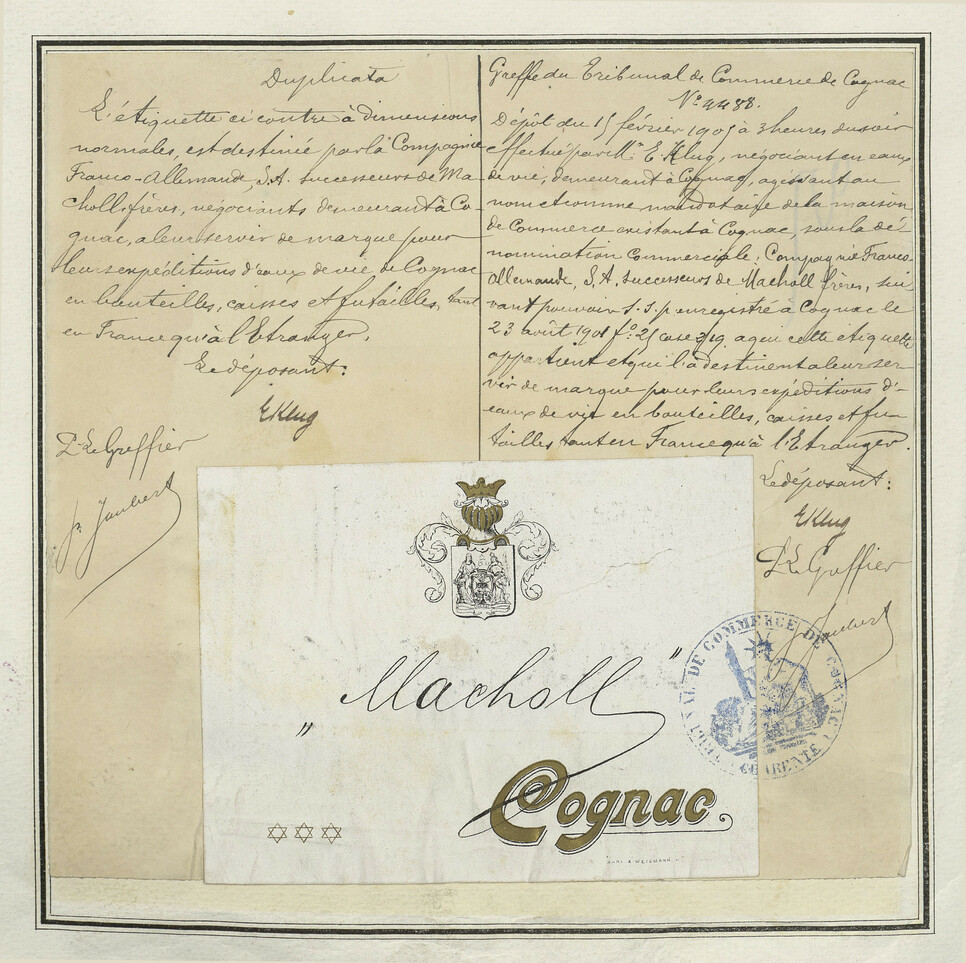 Duplicata
L'étiquette ci contre à dimensions
normales, est destinée par la Compagnie
Franco-Allemande, S.A. successeurs de Ma-
choll frères, négociants demeurant à Co-
gnac, a leur servir de marque pour
leurs expéditions d'eaux de vie de Cognac
en bouteilles, caisses et futailles, tant
en France qu'à l'Etranger.
Le déposant:
EKlug
Le Greffier
Jaubert
Greffe du Tribunal de Commerce de Cognac
N° 4488.
Dépôt du 15 février 1905 à 3 heures du soir
effectué par M. E. Klug, négociant en eaux
de vie, demeurant à Cognac, agissant au
nom et comme mandataire de la maison
de Commerce existant à Cognac, sous la dé-
nomination Commerciale: Compagnie Franco-
Allemande, S.A. successeurs de Macholl frères, sui-
vant pouvoir s.s.p. enregistré à Cognac le
23 août 1901 f° 25 case 219 a qui cette étiquette
appartient et qui l'a destinent a leur ser-
vir de marque pour leurs expéditions d'-
eaux de vie en bouteilles, caisses et fu-
tailles tant en France qu'à l'Etranger.
Le déposant:
EKlug
Le Greffier
Jaubert
TRIBUNAL DE COMMERCE DE COGNAC
CHARENTE
„Macholl"
Cognac